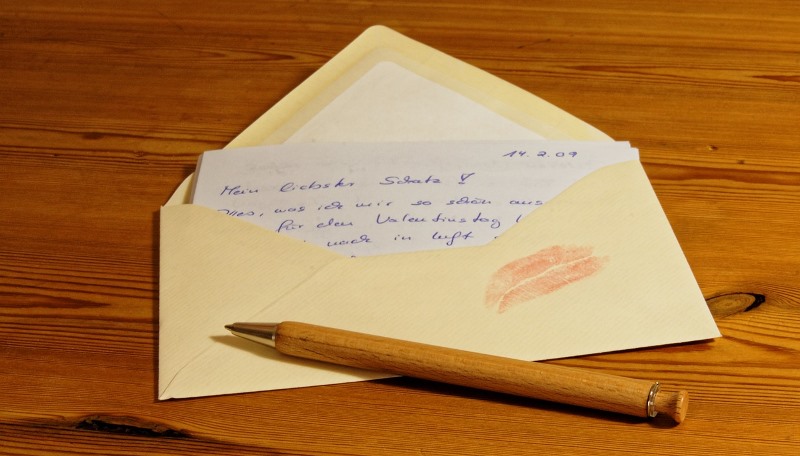 14.2.09
Mein liebster Schatz
Alles, was ich mir so schön aus
für den Valentinstag
in Luft